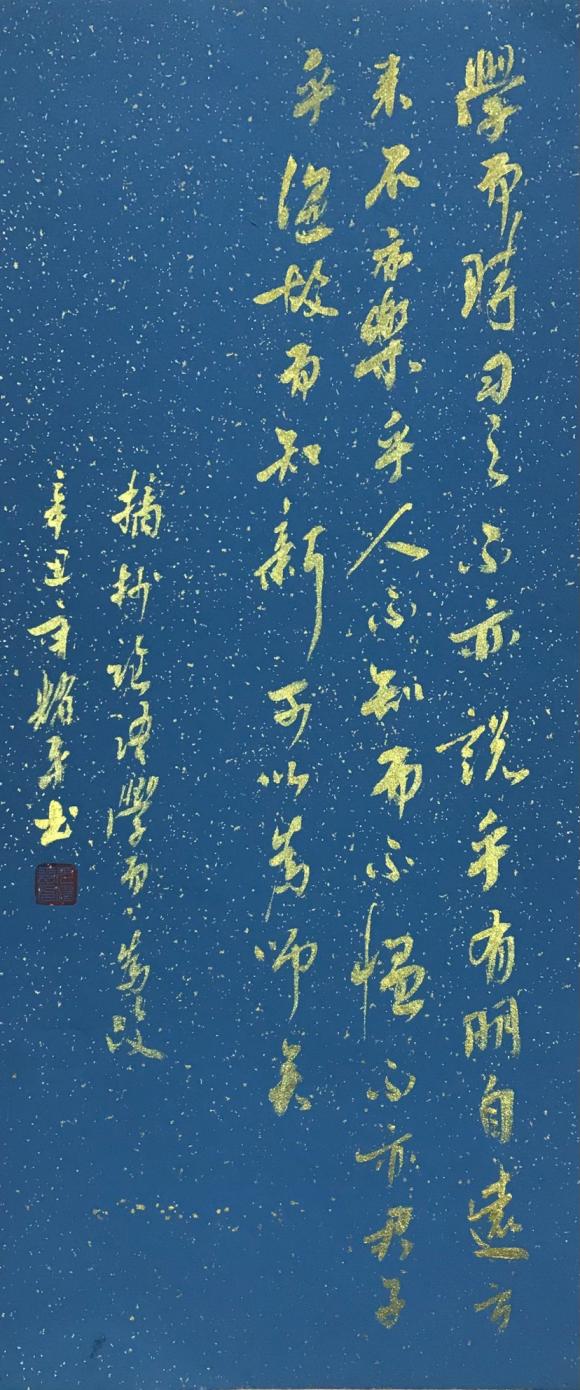 學而時習之不亦説乎有朋自遠方
来不亦樂乎人不知而不愠不亦君子
乎温故而知新可以為師矣
摘抄論語學而為政
辛丑